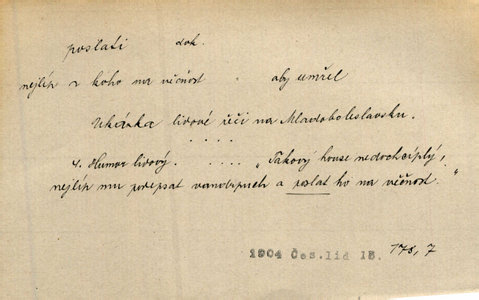 poslati dok.
nejlíp z koho na věčnost . aby umřel
Ukázka lidové řeči na Mladoboleslavsku.
. . . .
4. Humor lidový. . . . . . „Takový house nedochcíplý,
nejlíp mu podepsat a poslat ho na věčnost."
1904 Čes.lid 13. 175, 7